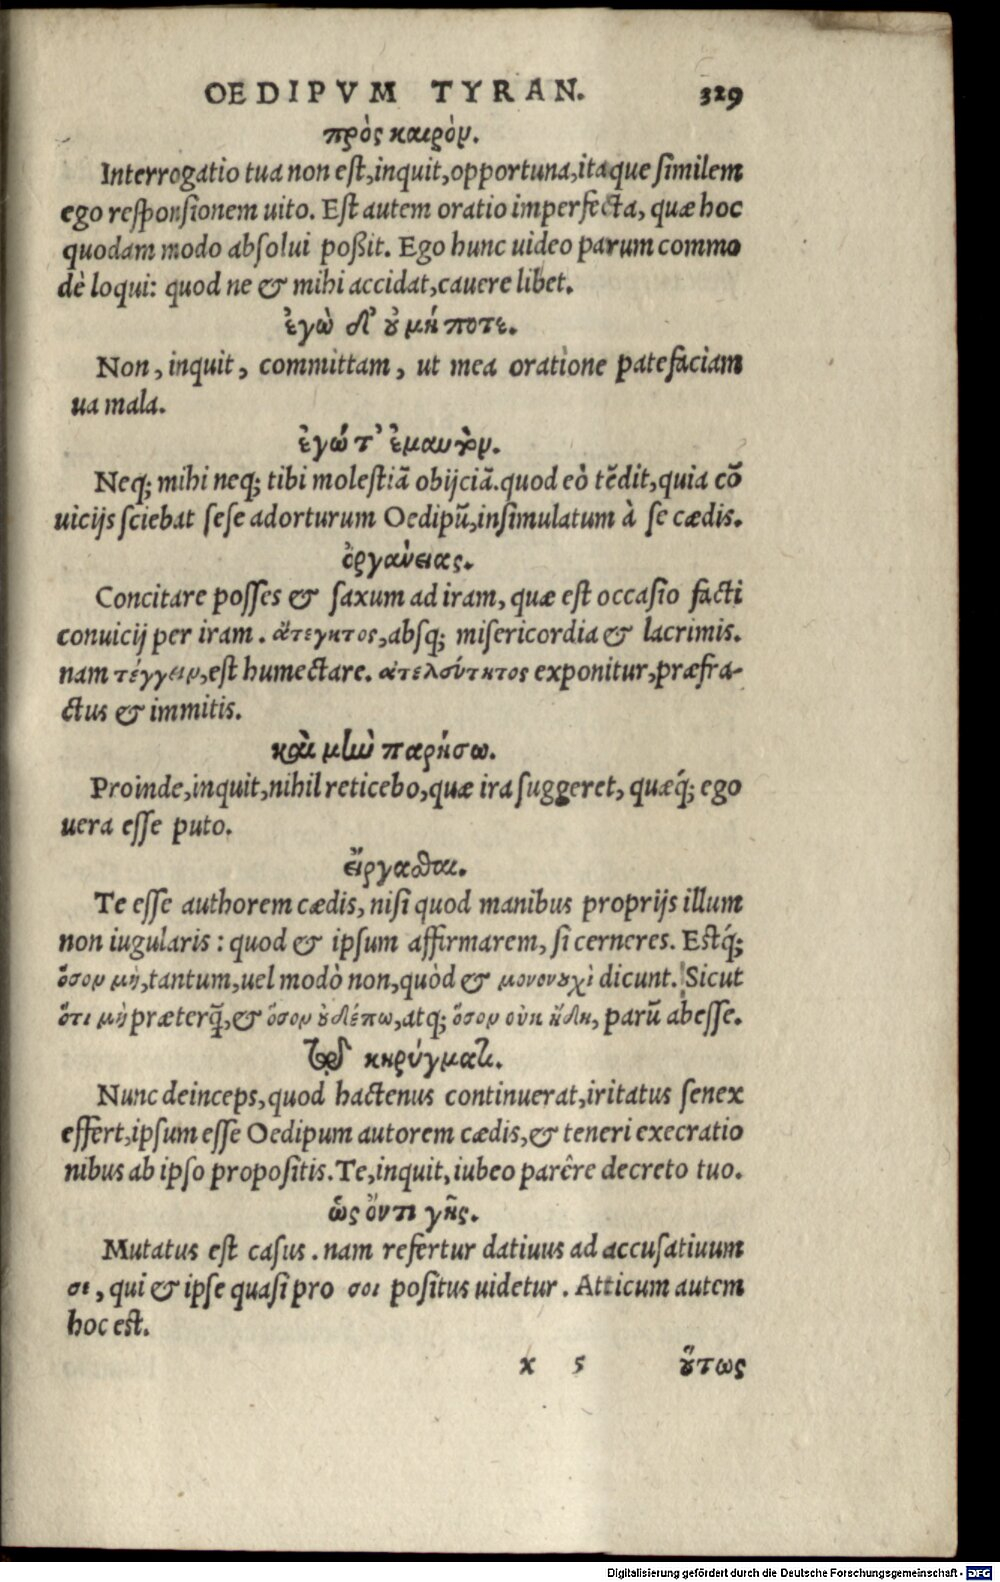 OEDIPVM TYRAN. 329
πρὸς καιρόν.
Interrogatio tua non est, inquit, opportuna, itaque similem
ego responsionem uito. Est autem oratio imperfecta, quæ hoc
quodam modo absolui poßit. Ego hunc uideo parum commo
dè loqui: quod ne & mihi accidat, cauere libet.
ἐγὼ δ' ȣ μή ποτε.
Non, inquit, committam, ut mea oratione patefaciam
ua mala.
ἐγώ τ' ἐμαυτὸν.
Neq; mihi neq; tibi molestiã obijciã. quod eò tẽdit, quia cõ
uicijs sciebat sese adorturum Oedipũ, insimulatum à se cædis.
ὀργάνειας.
Concitare posses & saxum ad iram, quæ est occasio facti
conuicij per iram. ἄτεγκτος, absq; misericordia & lacrimis.
nam τέγγειν, est humectare. ἀτελεύτητος exponitur, præfra-
ctus & immitis.
καὶ μὴν παρήσω.
Proinde, inquit, nihil reticebo, quæ ira suggeret, quæq́; ego
uera esse puto.
εἴργασθαι.
Te esse authorem cædis, nisi quod manibus proprijs illum
non iugularis: quod & ipsum affirmarem, si cerneres. Estq́;
ὅσον μὴ, tantum, uel modò non, quòd & μονονȣχὶ dicunt. Sicut
ὅτι μὴ præterq̃, & ὅσον ȣδέπω, atq; ὅσον οὐκ ἤδη, parũ abesse.
τῷ κηρύγματι.
Nunc deinceps, quod hactenus continuerat, iritatus senex
effert, ipsum esse Oedipum autorem cædis, & teneri execratio
nibus ab ipso propositis. Te, inquit, iubeo parêre decreto tuo.
ὡς ὄντι γῆς.
Mutatus est casus. nam refertur datiuus ad accusatiuum
σι, qui & ipse quasi pro σοι positus uidetur. Atticum autem
hoc est.
x 5 ȣ̔́τως
Digitalisierung gefördert durch die Deutsche Forschungsgemeinschaft - DFG